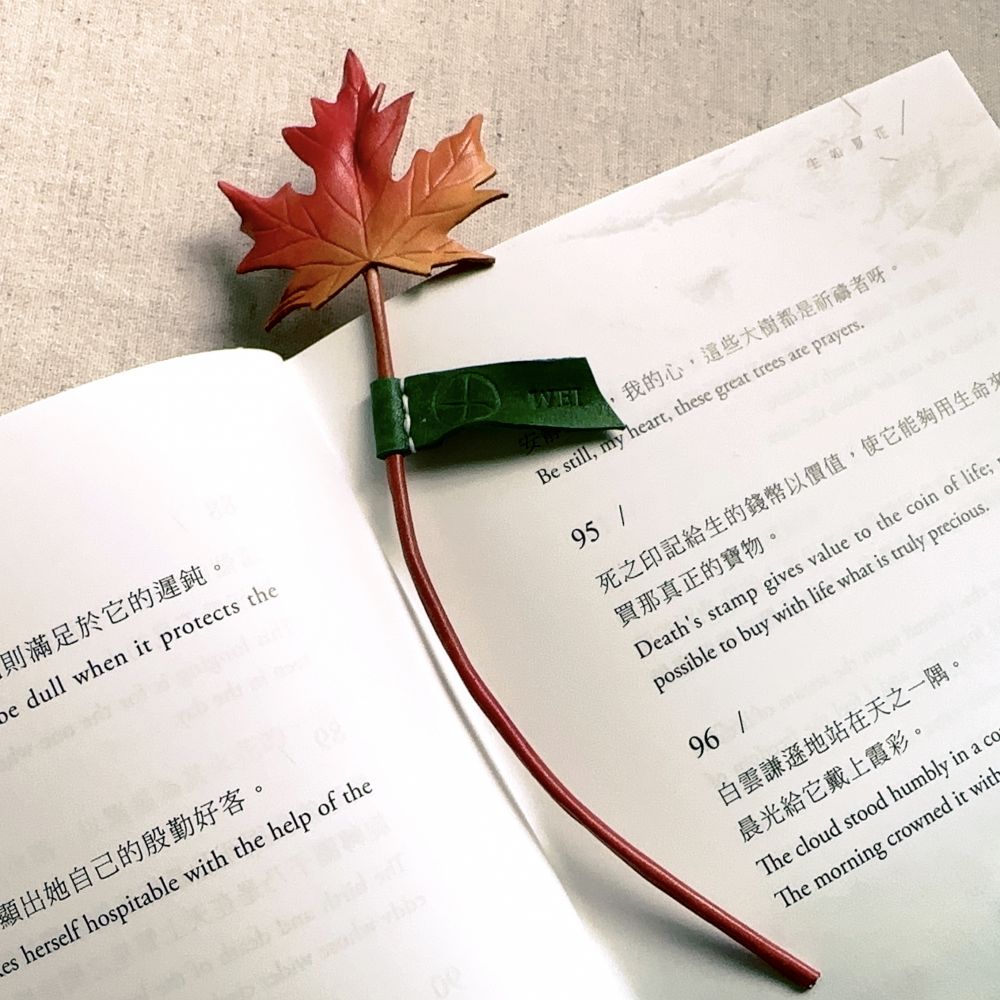 則滿足於它的遲鈍。
be dull when it protects the
顯出她自己的殷勤好客。
herself hospitable with the help of the
生如夏花
WEI
，我的心，這些大樹都是祈禱者呀。
Be still, my heart, these great trees are prayers.
95 /
死之印記給生的錢幣以價值，使它能夠用生命來
買那真正的寶物。
Death's stamp gives value to the coin of life;
possible to buy with life what is truly precious.
96 /
白雲謙遜地站在天之一隅。
晨光給它戴上霞彩。
The cloud stood humbly in a
The morning crowned it with